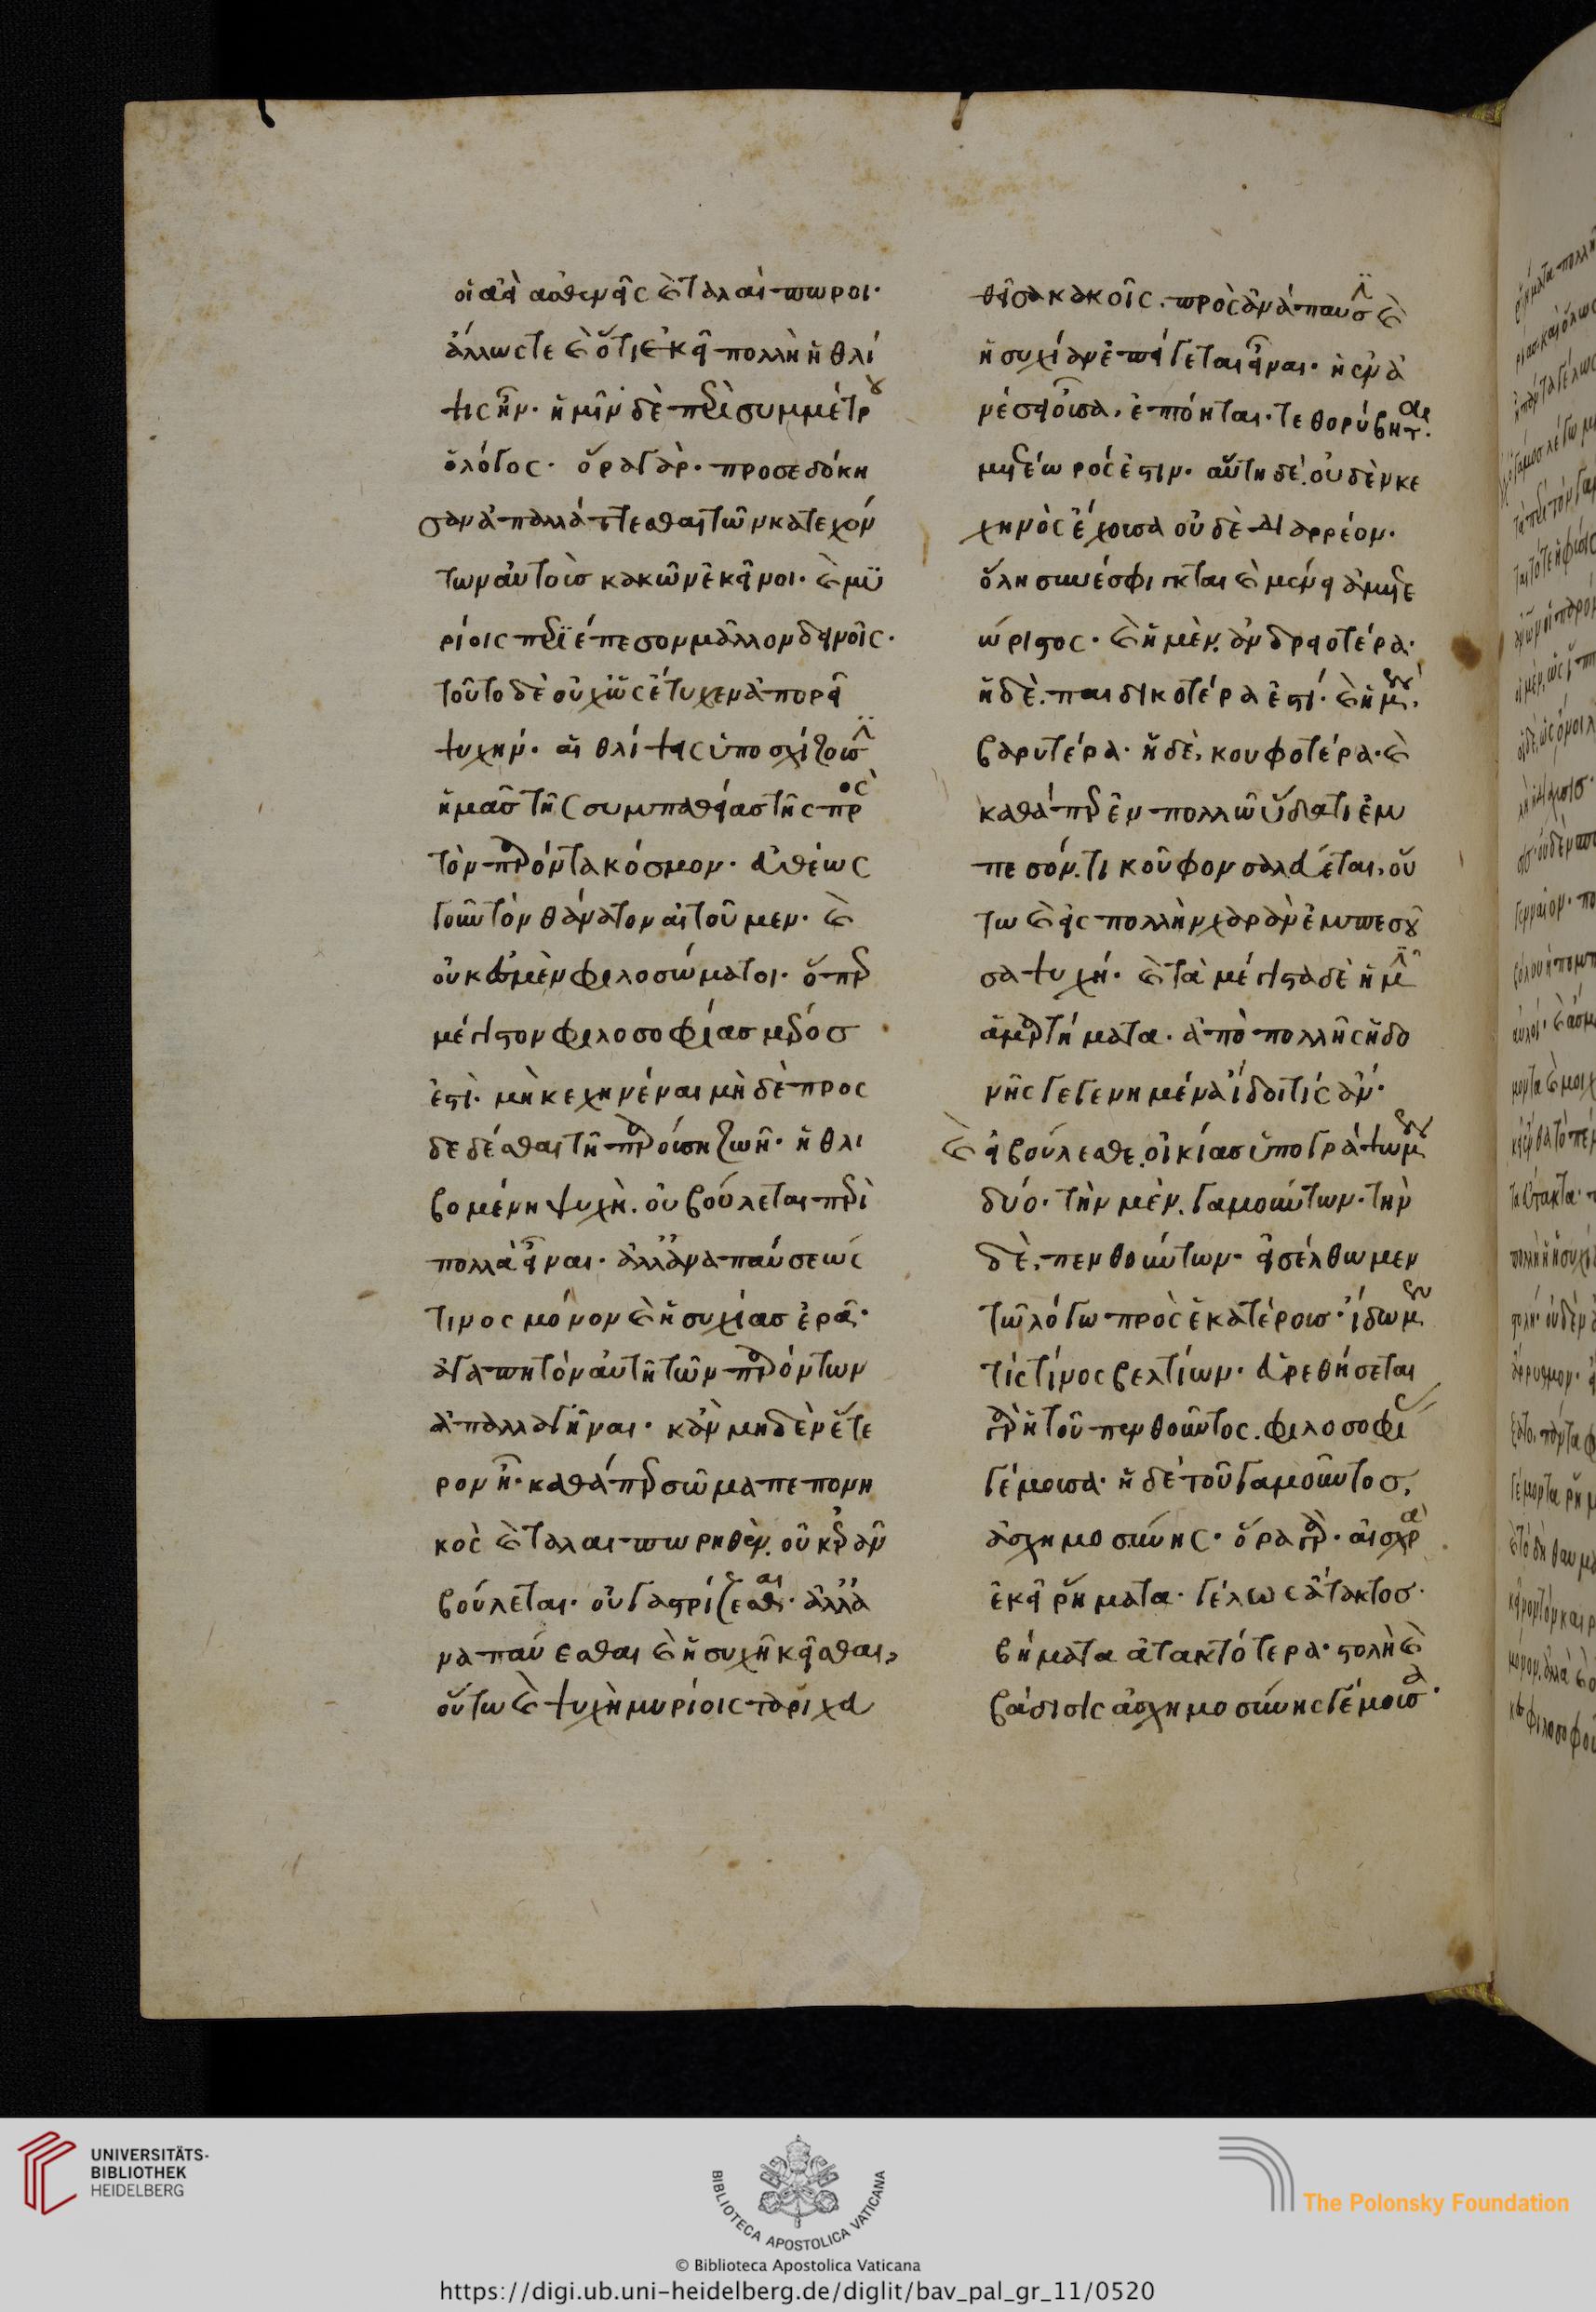 οἱ ἀεὶ ἀσθενεῖς ϗ ταλαίπωροι·
ἄλλως τε ϗ ὅτι ἐκεῖ πολλὴ ἡ θλί
ψις ἦν· ἡμῖν δὲ περὶ συμμέτρου
ὁ λόγος· ὅρα γὰρ· προσεδόκη
σαν ἀπαλλάττεσθαι τῶν κατεχόν
των αὐτοὺς κακῶν ἐκεῖνοι· ϗ μυ
ρίοις περιέπεσον μᾶλλον δεινοῖς·
τοῦτο δὲ οὐχ ὡς ἔτυχεν ἀπορεῖ
ψυχήν· αἱ θλίψεις ὑποσχίζουσιν
ἡμᾶς τῆς συμπαθείας τῆς πρὸς
τὸν παρόντα κόσμον· εὐθέως
γοῦν τὸν θάνατον αἰτοῦμεν· ϗ
οὐκ ἐσμὲν φιλοσώματοι· ὅπερ
μέγιστον φιλοσοφίας μέρος
ἐστὶ· μὴ κεχηνέναι μηδὲ προσ
δεδέσθαι τῇ παρούσῃ ζωῇ· ἡ θλι
βομένη ψυχὴ· οὐ βούλεται περὶ
πολλὰ εἶναι· ἀλλ' ἀναπαύσεώς
τινος μόνον ϗ ἡσυχίας ἐρᾶ·
ἀγαπητὸν αὐτῆ τῶν παρόντων
ἀπαλλαγῆναι· κἂν μηδὲν ἕτε
ρον ἦ· καθάπερ σῶμα πεπονη
κὸς ϗ ταλαιπωρηθὲν· οὐκ ἐρᾶν
βούλεται· οὐ γαστρίζεσθαι· ἀλλ' ἀ
ναπαύεσθαι ϗ ἡσυχῆ κεῖσθαι,
οὕτω ϗ ψυχὴ μυρίοις ταριχευ
θεῖσα κακοῖς· πρὸς ἀνάπαυσιν ϗ
ἡσυχίαν ἐπείγεται εἶναι· ἡ ἐν ἀ
νέσει οὖσα· ἐπτόηται· τεθορύβηται·
μετέωρός ἐστιν· αὕτη δὲ· οὐδὲν κε
χηνὸς ἔχουσα οὐδὲ διαρρέον·
ὅλη συνέσφιγκται ϗ μένει ἀμετε
ώριστος· ϗ ἡ μὲν· ἀνδρειοτέρα·
ἡ δὲ· παιδικοτέρα ἐστί· ϗ ἡ μὲν·
βαρυτέρα· ἡ δὲ, κουφοτέρα· ϗ
καθάπερ ἐν πολλῶ ὕδατι ἐμ
πεσόν τι κοῦφον σαλεύεται, οὕ
τω ϗ εἰς πολλὴν χαρὰν ἐμπεσοῦ
σα ψυχή· ϗ τὰ μέγιστα δὲ ἡμῖν
ἁμαρτήματα· ἀπὸ πολλῆς ἡδο
νῆς γεγενημένα ἴδοι τίς ἄν·
ϗ εἰ βούλεσθε, οἰκίας ὑπογράψωμεν
δύο· τὴν μὲν, γαμούντων· τὴν
δὲ, πενθούντων· εἰσέλθωμεν
τῶ λόγω πρὸς ἑκατέρους· ἴδωμεν
τίς τίνος βελτίων· εὑρεθήσεται
γὰρ ἡ τοῦ πενθοῦντος, φιλοσοφίας
γέμουσα· ἡ δὲ τοῦ γαμοῦντος,
ἀσχημοσύνης· ὅρα γὰρ· αἰσχρὰ
ἐκεῖ ῥήματα· γέλως ἄτακτος·
βήματα ἀτακτότερα· στολὴ ϗ
βάσισις ἀσχημοσύνης γέμουσα·
UNIVERSITÄTS-
BIBLIOTHEK
HEIDELBERG
BIBLIOTECA APOSTOLICA VATICANA
The Polonsky Foundation
© Biblioteca Apostolica Vaticana
https://digi.ub.uni-heidelberg.de/diglit/bav_pal_gr_11/0520